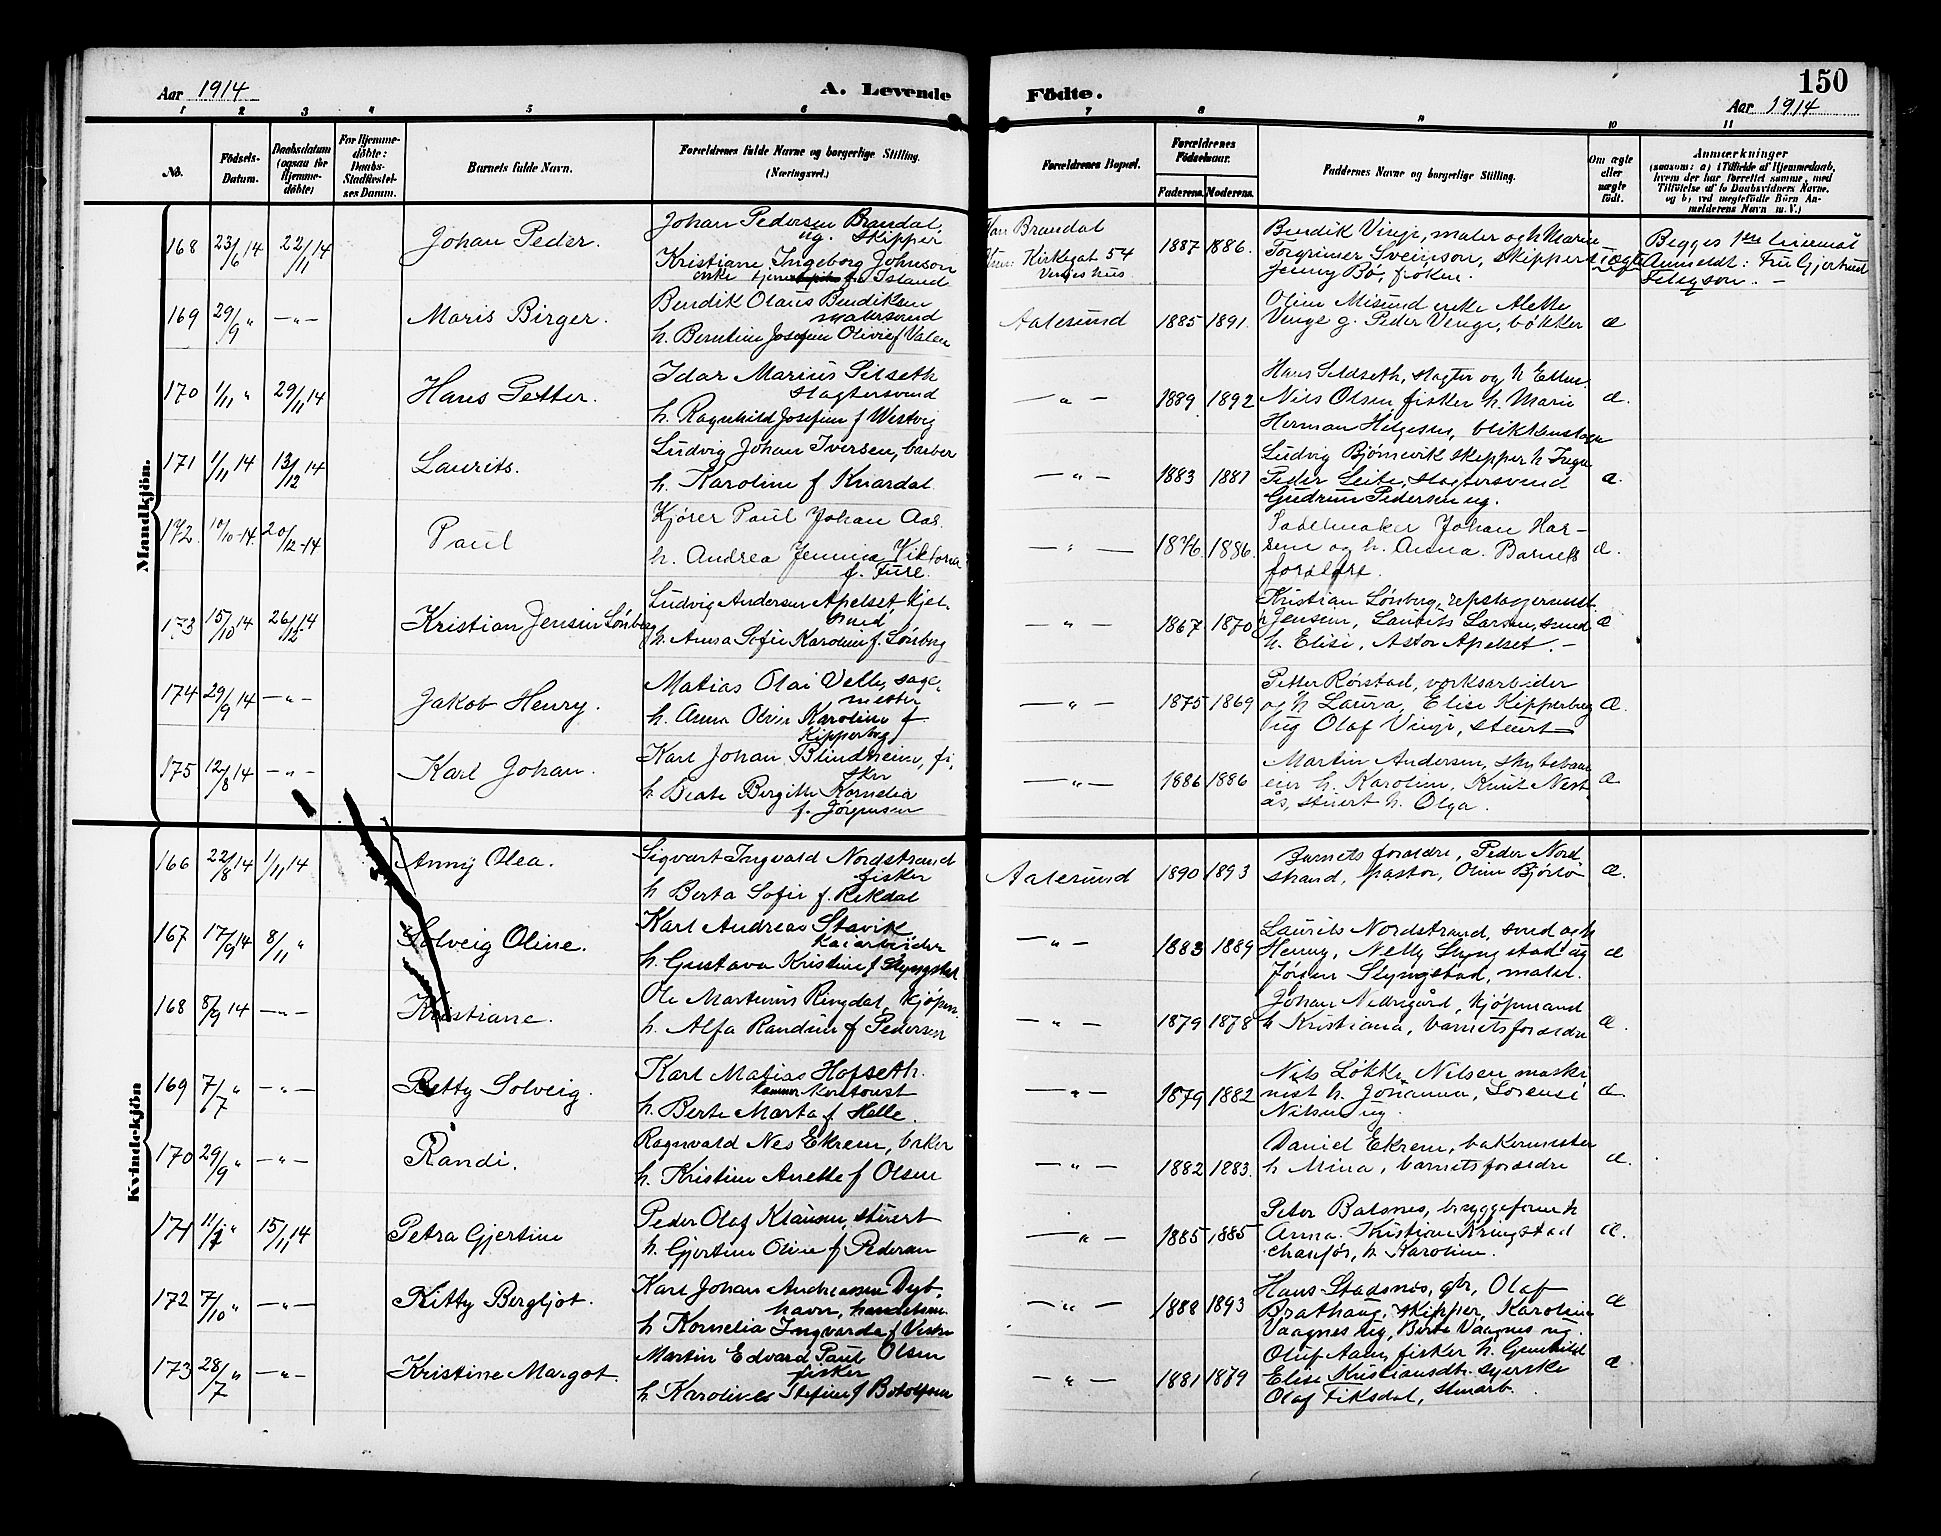 150
Aar 1914
A. Levende Fødte.
Aar 1914
1 2 3 4 5 6 7 8 9 10 11
No.
Fødsels-
Datum.
Daabsdatum
(ogsaa for
Hjemme-
døbte)
For Hjemme-
døbte:
Daabs-
Stadfæstel-
ses Datum.
Barnets fulde Navn.
Forældrenes fulde Navne og borgerlige Stilling.
(Næringsvei.)
Forældrenes Bopæl.
Forældrenes
Fødselsaar.
Faderens. Moderens.
Faddernes Navne og borgerlige Stilling.
Om ægte
eller
uægte
født.
Anmærkninger
(saasom: a) i Tilfælde af Hjemmedaab,
hvem der har forrettet samme, med
Tilføielse af to Daabsvidners Navne.
og b) ved uegtefødte Børn An-
melderens Navn m. V.)
Mandkjön.
168 23/6 14 22/11 14
Johan Peder.
Johan Pedersen Brandal,
ug. skipper
Kristiane Ingeborg Johnson
enke fra Island
Han Brandal
Kirkegat 54
1887 1886.
Bendik Vinje, maler og h Marie
Torgrimer Sveinson, skipper
Jenny Bø, frøken.
uægte
Begges 1ste leiermål
Anmeldt: Fru Gjertrud
169 29/9 " —"—
Maris Birger.
Bendik Olaus Bendiksen
malersvend
h. Berntine Josefine Olivie f Valen
Aalesund
1885 1891.
Oline Misund enke Alette
Venge g. Peder Venge, bøkker
æ
170 1/11 " 29/11 14
Hans Petter.
Idar Marius Silseth
slagtersvend
h. Ragnhild Josefine f Westvig
—"—
1889 1892
Hans Sildseth, slagter og h Ellen.
Nils Olsen fisker h. Marie
æ.
171 1/11 14 13/12 14
Laurits.
Ludvig Johan Iversen, barber
h. Karoline f Knardal.
—"—
1883 1881
Herman Helgesen, blikkenslager
Ludvig Bjørnevik skipper h Inga
Peder Leite, slagtersvend
Gudrun Pedersen ug.
æ.
172. 10/10-14. 20/12-14
Paul
Kjører Paul Johan Aas.
h. Andrea Jennica Viktoria
f. Fure.
—"—
1876. 1886.
Sadelmaker Johan Har-
sem og h. Anna. Barnets
forældre.
æ.
173 15/10 14 26/12 14
Kristian Jensen Lønberg
Ludvig Andersen Apelset kjel-
smed
h. Anna Sofie Karoline f. Lønberg
—"—
1867 1870
Kristian Lønberg, repslagermest.
h Jensen, Laurits Larsen, smed
h. Elise, Astor Apelset. —
æ
174 29/9 14 —"—
Jakob Henry.
Matias Olai Velle, sage-
mester
h. Anna Olive Karoline f
Kipperberg
—"—
1875 1869
Petter Rørstad, verksarbeider
og h Laura, Elise Kipperberg
ug Olaf Vinje, stuert
æ.
175 12/8 14 —"—
Karl Johan.
Karl Johan Blindheim, fi-
sker
h. Beate Birgitte Kornelia
f. Jørgensen
—"—
1886 1886
Martin Andersen, skytebaa-
eier h. Karoline, Knut Nest
ås, stuert h. Olga.
æ
Kvindekjön
166 22/8 14 1/11 14
Anny Olea.
Sigvart Ingvald Nordstrand
fisker
h Berta Sofie f. Rekdal
Aalesund
1890 1893
Barnets forældre, Peder Nord
strand, pastor, Oline Bjørlo
æ.
167 17/9 14 8/11 "
Solveig Oline.
Karl Andreas Stavik
kaiarbeider
h. Gustava Kristine f Slyngstad
—"—
1883 1889
Laurits Nordstrand, smed og h
Henny, Nelly Slyngstad ug
Jørgen Slyngstad, maler.
æ
168 8/9 14 —"—
Kristiane.
Ole Martinus Ringdal, kjøpm.
h. Alfa Randine f Pedersen
—"—
1879 1878
Johan Nedregård, kjøpmand
h Kristiana, barnets forældre
æ.
169 7/7 " —"—
Betty Solveig.
Karl Matias Hofseth.
h. Berte Marta f Helle.
—"—
1879 1882
Nils Løkke Nilsen maski
nist h. Johanna, Sorense
Nilsen ug.
æ.
170 29/9 " —"—
Randi.
Ragnvald Nes Ekrem, baker
h. Kristine Anette f Olsen
—"—
1882 1883.
Daniel Ekrem, bakermester
h Mina, barnets forældre
æ.
171 11/7 " 15/11 14
Petra Gjertine
Peder Olaf Klausen, stuert
h. Gjertine Oline f Pedersen
—"—
1885 1885
Peter Balsnes, bryggeform h
Anna. Kristian Kringstad
chaufør, h Karoline.
æ.
172 7/10 " —"—
Kitty Bergljot.
Karl Johan Andreassen Dyb-
havn, handelsm
h Kornelia Ingvarda f Vestre
—"—
1888 1893
Hans Stadsnes, gbr, Olaf
Brathaug, skipper, Karoline
Vaagnes ug, Berte Vaagnes ug.
æ
173 28/7 " —"—
Kristine Margot.
Martin Edvard Paul Olsen
fisker
h Karoline Stefine f Botolfsen
—"—
1881 1879
Oluf Aam, fisker h. Gunhild
Elise Kristiansdtr. syerske
Olaf Fiksdal,
æ